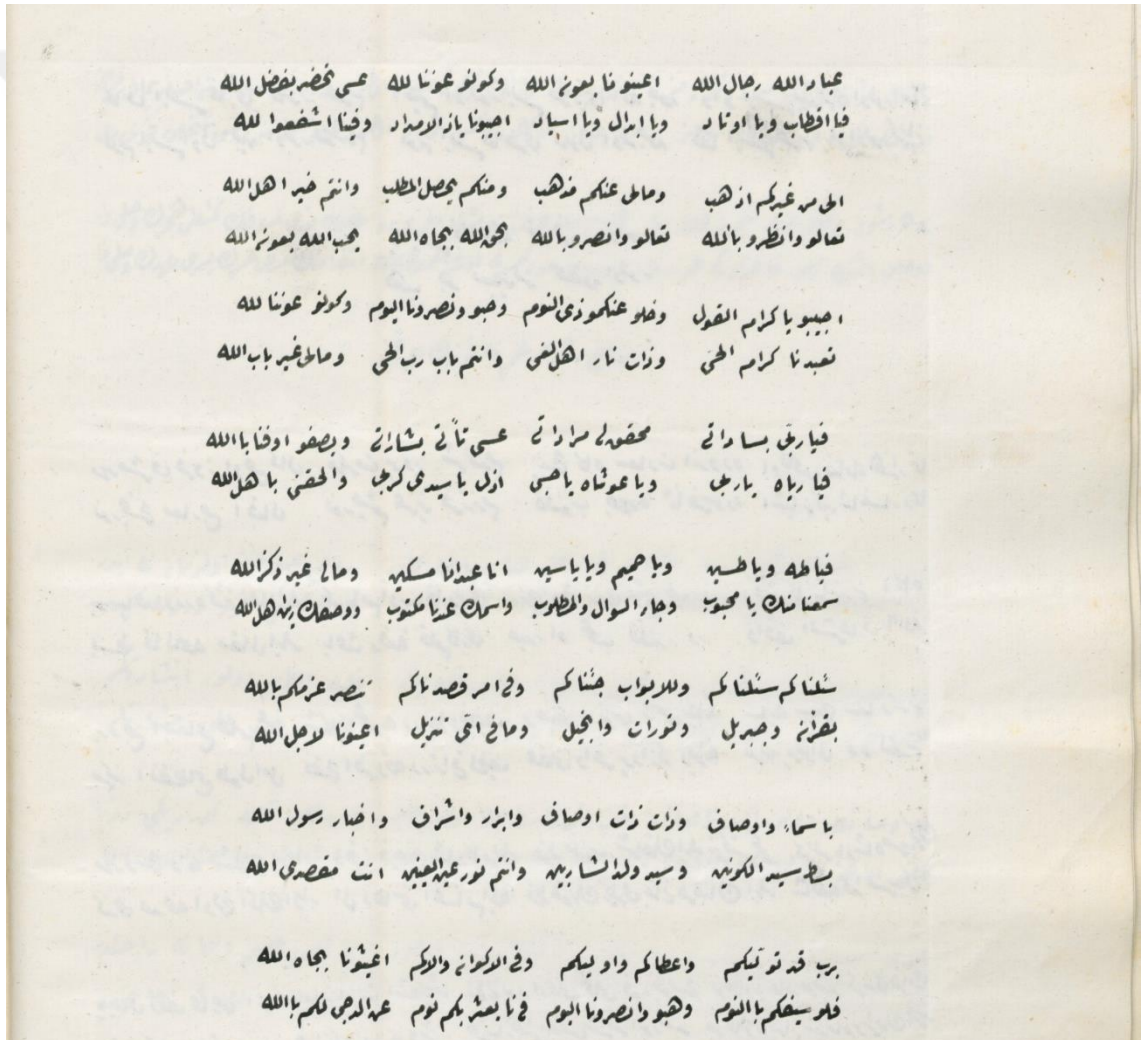 عباد الله رجال الله اعينونا بعون الله وكونو عوننا لله عسى نحضر بفضل الله
فيا اقطاب ويا اوتاد ويا ابدال ويا اسياد اجيبونا ياذ الامداد وفينا اشفعوا لله
الى من غيركم اذهب ومالى عنكم مذهب ومنكم يحصل المطلب وانتم خير اهل الله
تعالو وانظرو بالله تعالو وانصرو بالله بحق الله بجاه الله يحب الله بعون الله
اجيبو يا كرام القول وخلو عنكمو ذى النوم وهبو ونصرونا اليوم وكونو عوننا لله
تعبدنا كرامه الحى وذات نار اهل الغى وانتم باب رب الحى ومالى غير باب الله
فيا ربى بساداتى محقق لى مراداتى عسى تأتى بشاراتى ويصفو اوقنا باالله
فيا رباه يا ربى ويا غوثاه ياحسى ازل يا سيدى كربى والحضنى باهل الله
فيا طه ويا طسين ويا حميم ويا ياسين انا عبدانا مسكين ومالى غير ذكر الله
سمعنا منك يا محبوب وجاء السوال والمطلوب واسمك عندنا مكتوب ووصفك زين اهل الله
سئلناكم سئلناكم وللابواب جئناكم وفى امر قصدناكم تنصر عزمكم بالله
بقرأنه وجبريل وتورات وانجيل ومافى اتى تنزيل اعينونا لاجل الله
باسماء واوصاف وذات ذات اوصاف وابرار واشراف واخبار رسول الله
سيد الكونين وسيد ولد الشاربين وانتم نور عين العينين انت مقصدى الله
برب قد تونيكم واعطاكم واوليكم وفى الاكوانه والاكم اغيثونا بجاه الله
فلو باالنوم وهبو وانصرونا اليوم بكم نوم عن الدجى لكم باالله